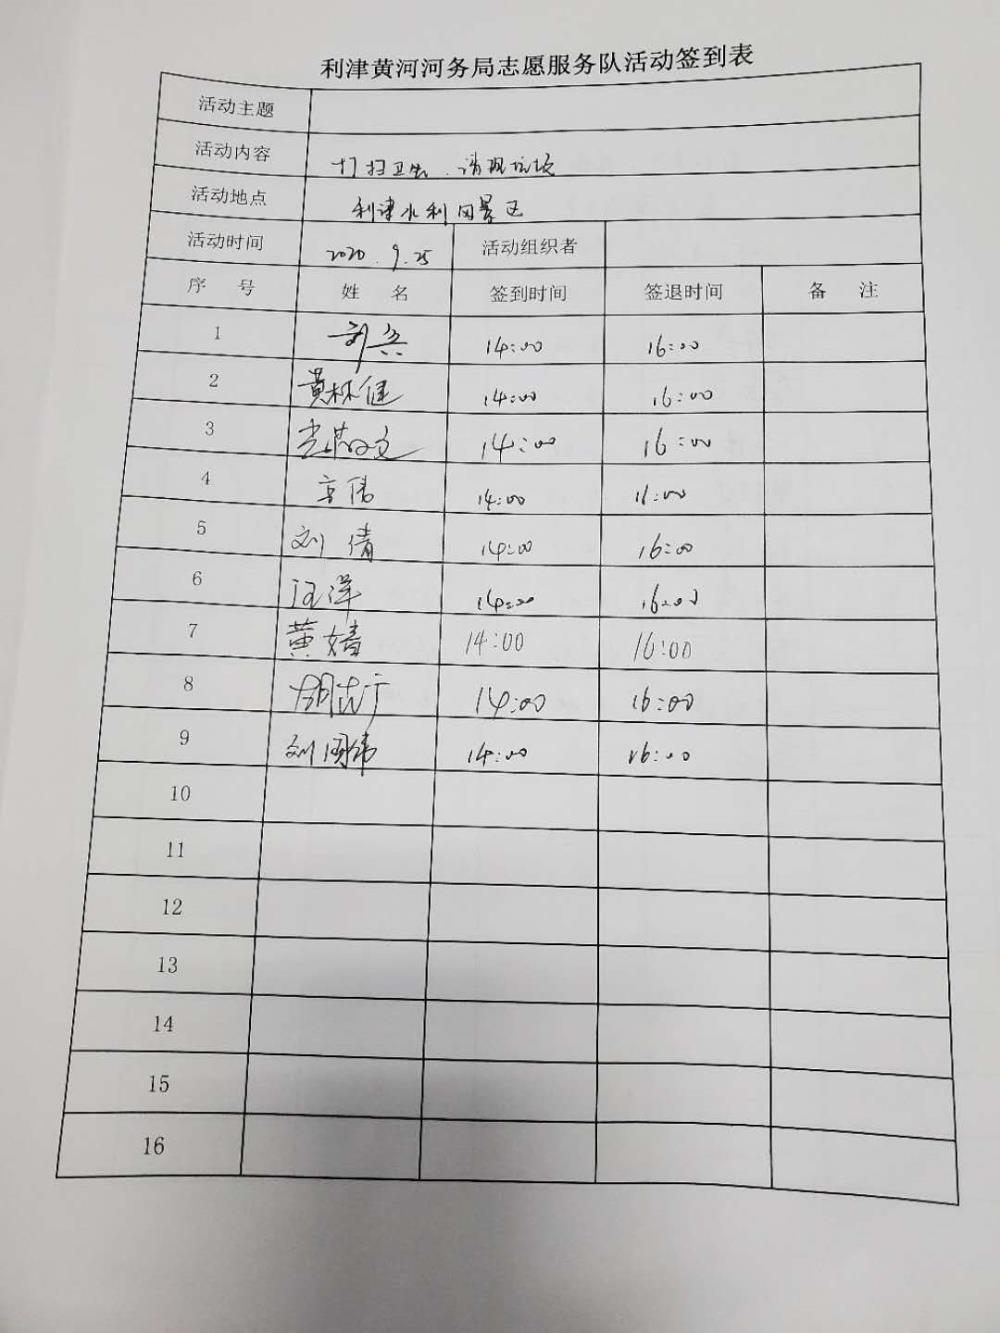 利津黄河河务局志愿服务队活动签到表
活动主题
活动内容 打扫卫生、清理垃圾
活动地点 利津水利风景区
活动时间 2020.9.25 活动组织者
序 号 姓 名 签到时间 签退时间 备 注
1 14:00 16:00
2 黄林健 14:00 16:00
3 14:00 16:00
4 14:00 16:00
5 刘倩 14:00 16:00
6 汪洋 14:00 16:00
7 黄婧 14:00 16:00
8 胡志广 14:00 16:00
9 刘国伟 14:00 16:00
10
11
12
13
14
15
16